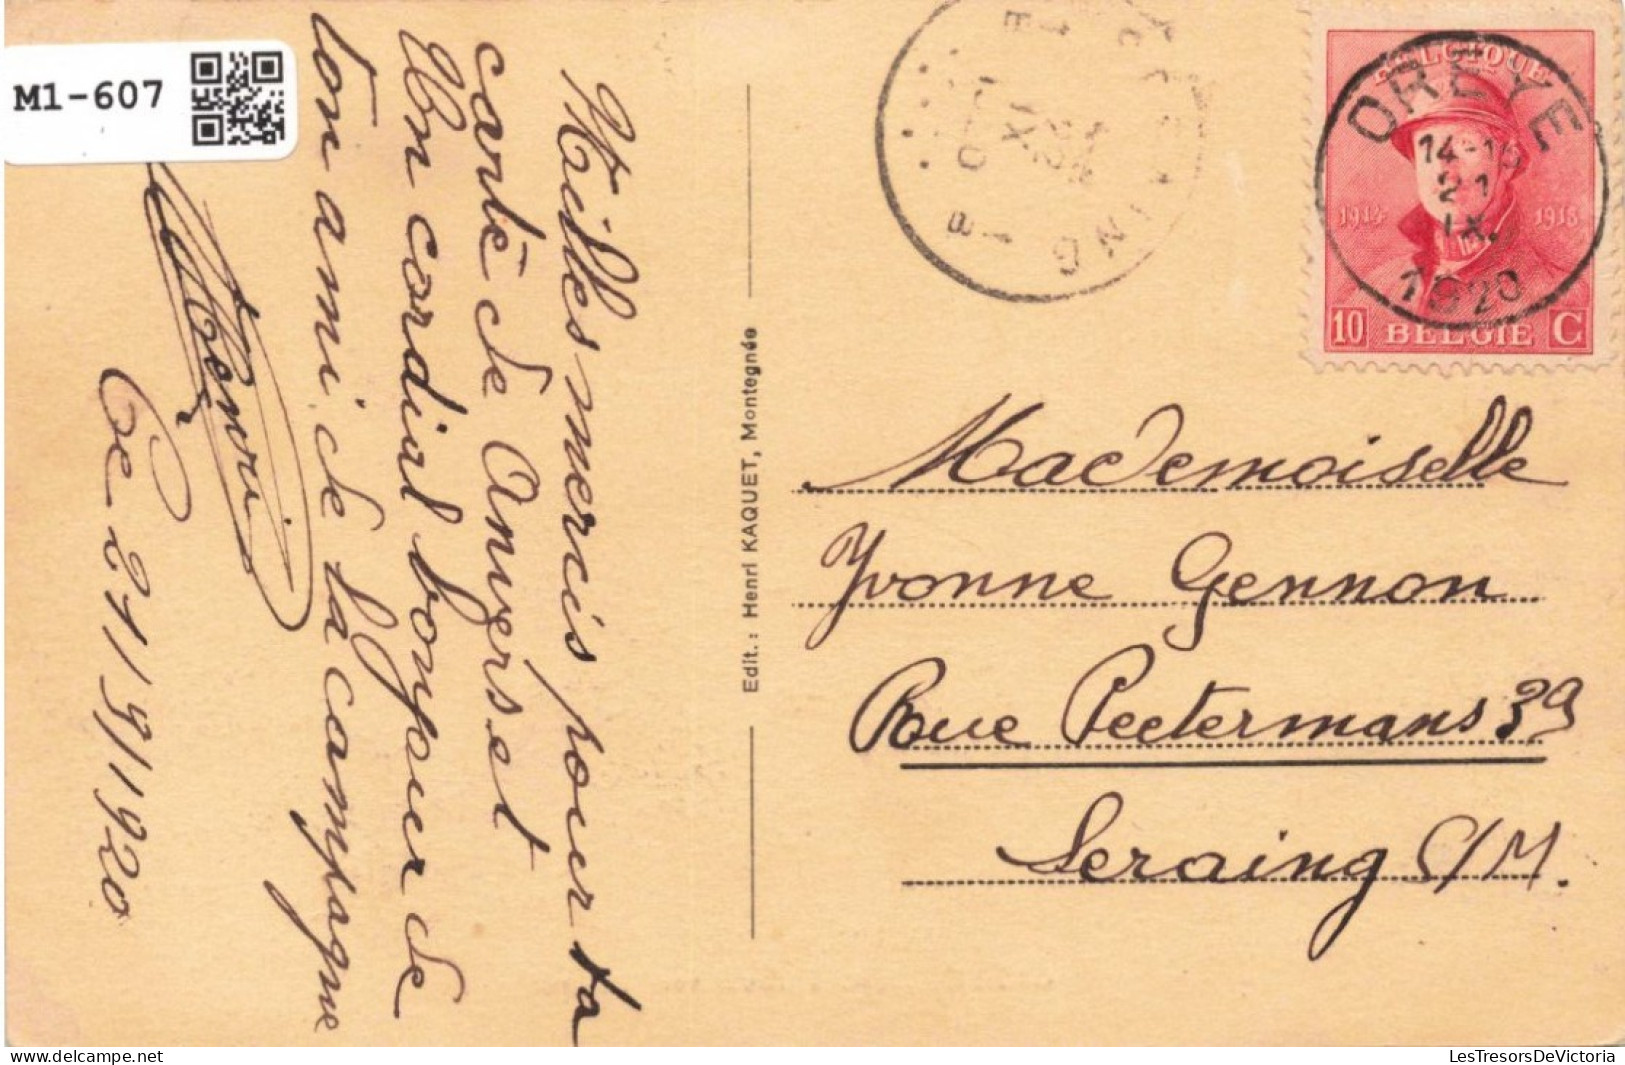 M1-607
Milles mercis pour ta
carte de Anvers et
Un cordial bonjour de
ton ami de la campagne
Henri
Ce 21/9/1920
Edit. : Henri KAQUET, Montegnée
BELGIQUE
OREYE
14-15
21
IX
1920
1914 1918
10 BELGIE C
Mademoiselle
Yvonne Gennon
Rue Peetermans 39
Seraing S/M.
LesTresorsDeVictoria